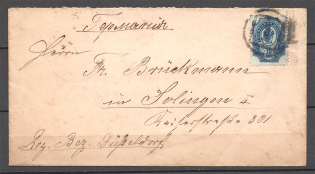 Германія
Herrn
Fr. Brückmann
in Solingen
Kaiserstraße 301
Reg. Bez. Düsseldorf